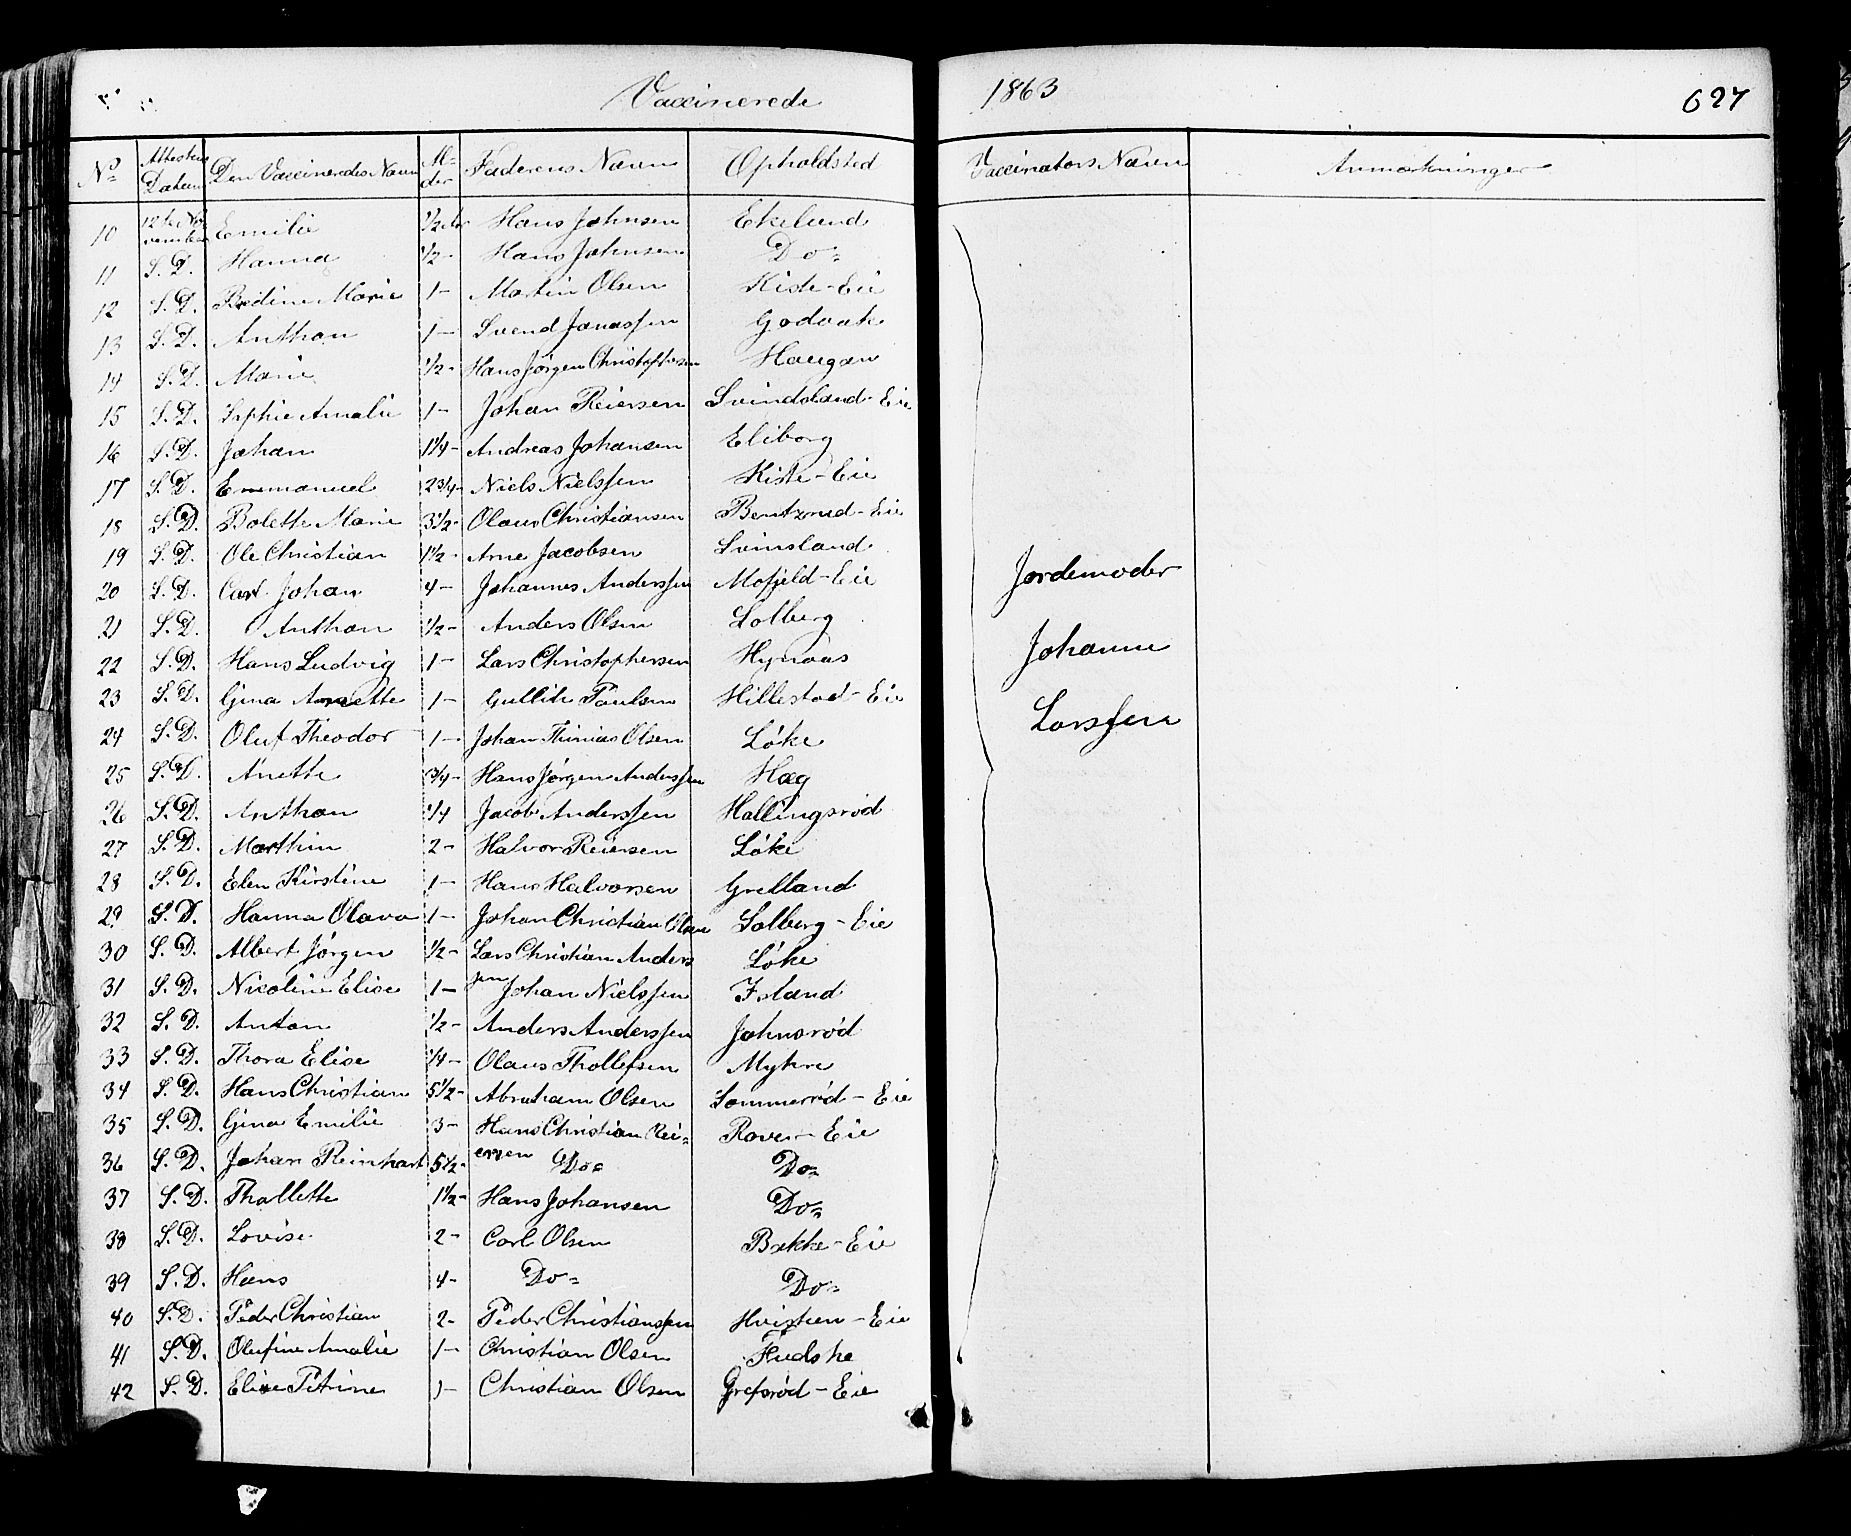 Vaccinerede 1863 627
No Attestens Datum Den Vaccineredes Navn Al- der Faderens Navn Opholdsted Vaccinators Navn Anmærkninger
10 12te November Emilie 1/2 Hans Johnsen Ekelund
11 S. D. Hanna 1/2 - Hans Johnsen Do =
12 S. D. Bredine Marie 1 - Martin Olsen Kiste - Eie
13 S. D. Anthon 1 - Svend Jonassen Godvak
14 S. D. Marie 1/2 - Hans Jørgen Christophersen Haugan
15 S. D. Sophie Amalie 1 - Johan Reiersen Svindsland - Eie
16 S. D. Johan 1 1/4 - Andreas Johansen Eliborg
17 S. D. Emmanuel 2 3/4 - Niels Nielssen Kiste - Eie
18 S. D. Bolette Marie 3 1/2 - Olaus Christiansen Bentzrud - Eie
19 S. D. Ole Christian 1 1/2 - Arne Jacobsen Svinsland
20 S. D. Carl Johan 4 - Johannes Anderssen Mofjeld - Eie
21 S. D. Anthon 1/2 - Anders Olsen Solberg
22 S. D. Hans Ludvig 1 - Lars Christophersen Hynaas
23 S. D. Gina Annette 1 - Gullik Paulsen Hillestad - Eie
24 S. D. Oluf Theodor 1 - Johan Olsen Løke
25 S. D. Anette 3/4 - Hans Jørgen Anderssen Hæg
26 S. D. Anthon 1/4 Jacob Anderssen Hallingsrød
27 S. D. Marthin 2 - Halvor Reiersen Løke
28 S. D. Elen Kirstine 1 - Hans Halvorsen Grelland
29 S. D. Hanna Olava 1 - Johan Christian Olsen Solberg - Eie
30 S. D. Albert Jørgen 1/2 - Lars Christian Anders Løke
31 S. D. Nicoline Elise 1 - sen Johan Nielssen Island
32 S. D. Anton 1/2 - Anders Anderssen Johnsrød
33 S. D. Thora Elise 1/4 - Olaus Thollefsen Myhre
34 S. D. Hans Christian 5 1/2 - Abraham Olsen Sommerød - Eie
35 S. D. Gina Emilie 3 - Hans Christian Rei= Rove - Eie
36 S. D. Johan Reinhart 5 1/2 - ersen Do = Do =
37 S. D. Thollette 1 1/2 - Hans Johansen Do =
38 S. D. Lovise 2 - Carl Olsen Bække - Eie
39 S. D. Hans 4 - Do = Do =
40 S. D. Peder Christian 2 - Peder Christianssen Hvitsten - Eie
41 S. D. Olufine Amalie 1 - Christian Olsen Fudske
42 S. D. Elise Petrine 1 - Christian Olsen Grefsrød - Eie
Jordemoder
Johanne
Larssen